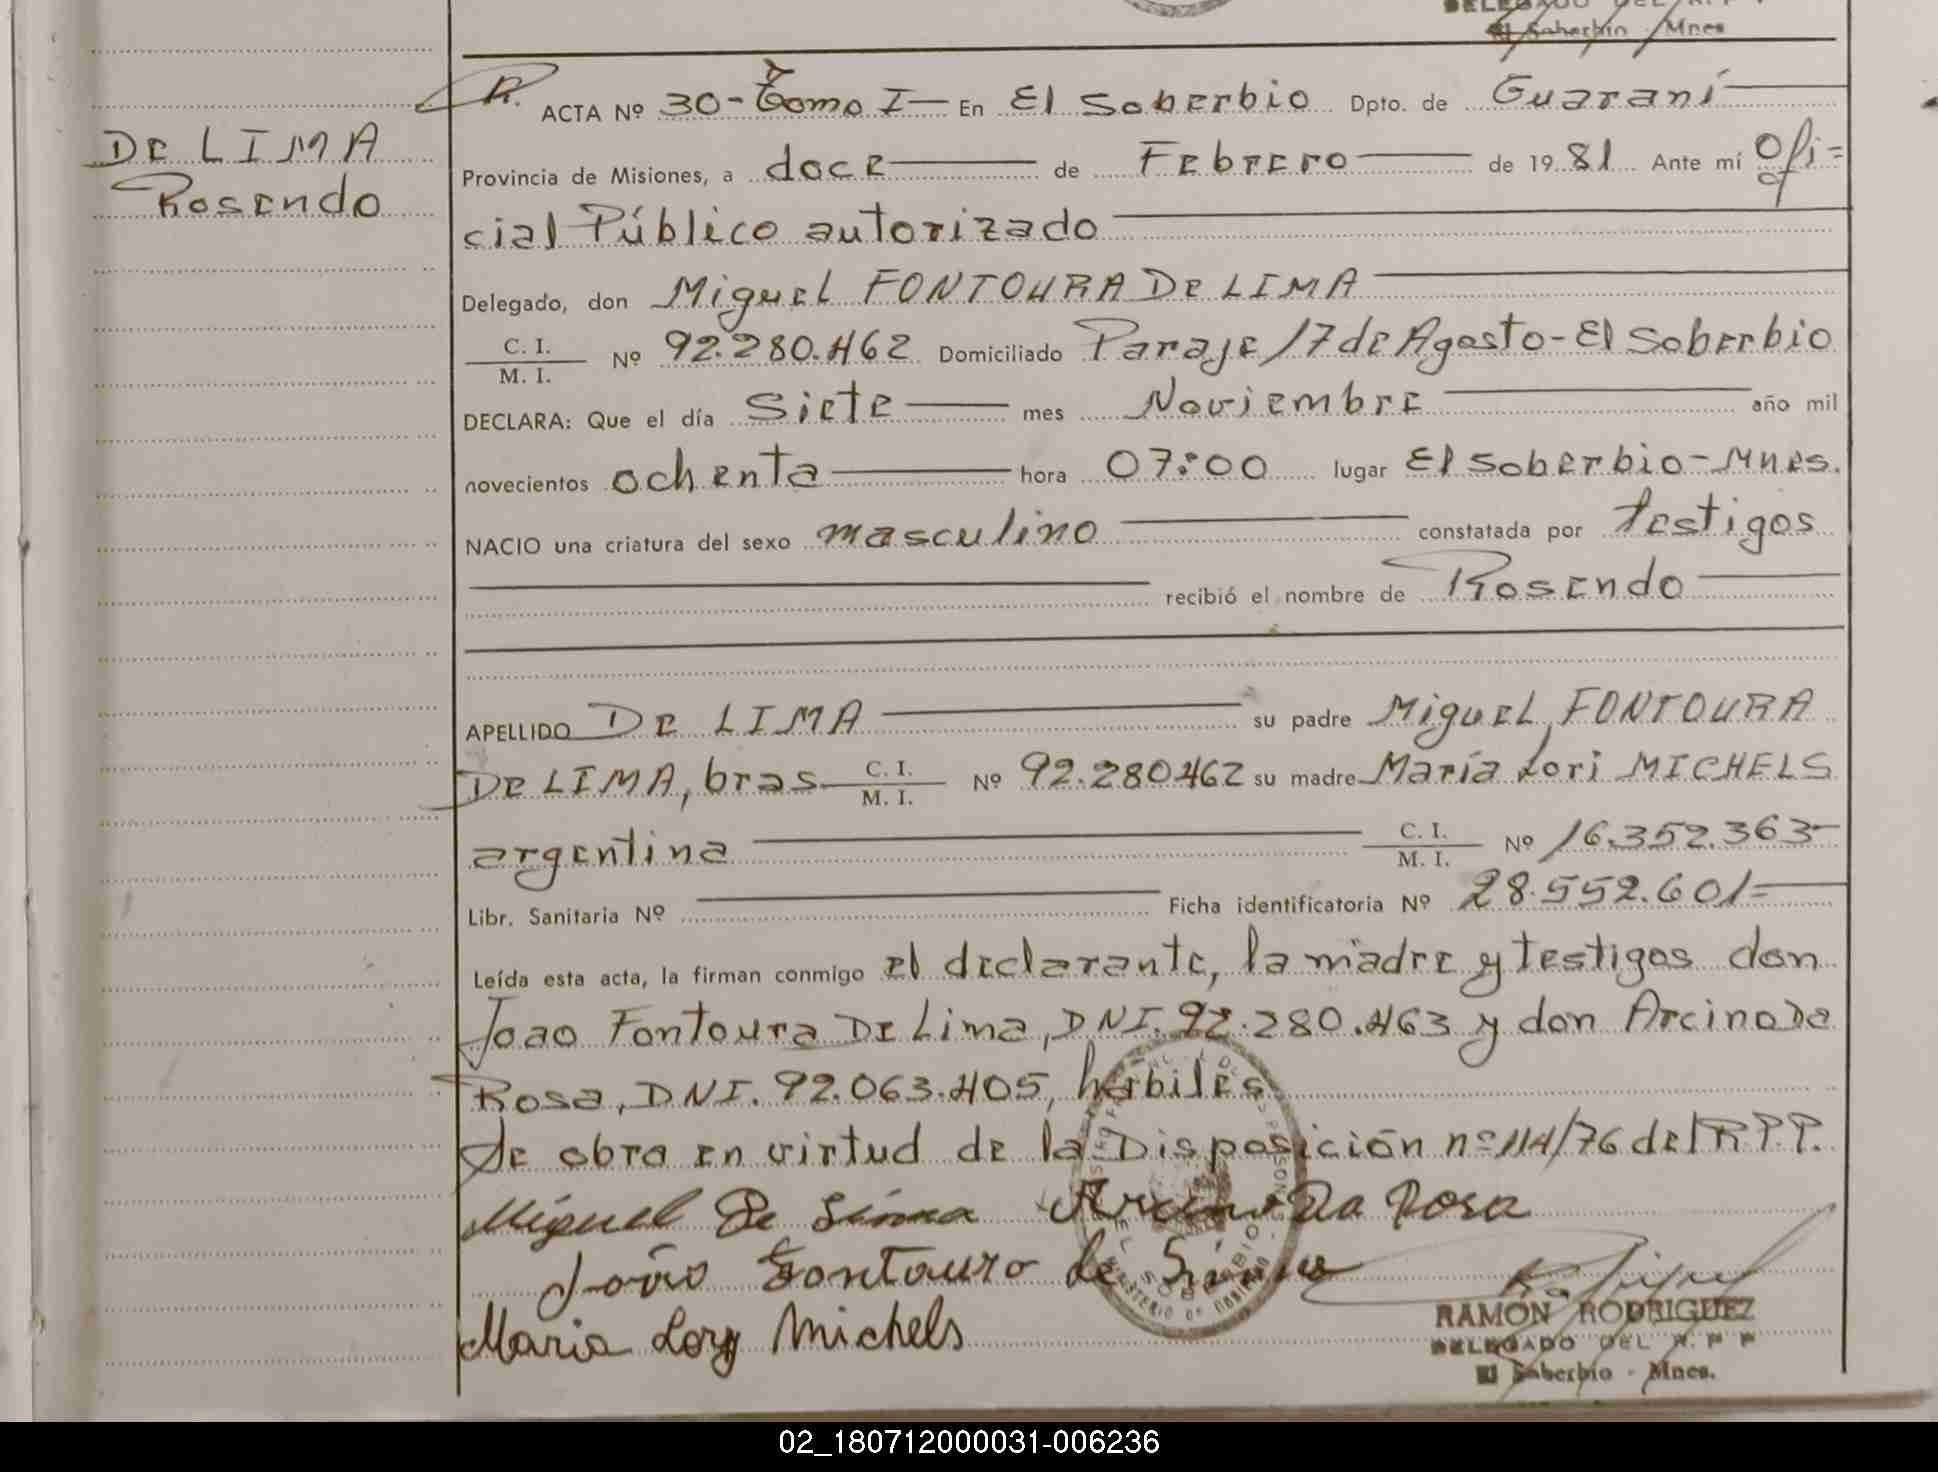 DELEGADO DEL R. P. P.
El Soberbio - Mnes
DE LIMA
Rosendo
R. ACTA Nº 30-Tomo I- En El Soberbio Dpto. de Guaraní
Provincia de Misiones, a doce de Febrero de 1981 Ante mí Ofi=
cial Público autorizado
Delegado, don Miguel FONTOURA DE LIMA
C. I.
M. I. Nº 92.280.462 Domiciliado Paraje 17 de Agosto-El Soberbio
DECLARA: Que el día Siete mes Noviembre año mil
novecientos ochenta hora 07:00 lugar El Soberbio-Mnes.
NACIO una criatura del sexo masculino constatada por testigos
recibió el nombre de Rosendo
APELLIDO DE LIMA su padre Miguel FONTOURA
DE LIMA, bras C. I. M. I. Nº 92.280462 su madre María Lori MICHELS
argentina C. I. M. I. Nº 16.352.363-
Libr. Sanitaria Nº Ficha identificatoria Nº 28.552.601=
Leída esta acta, la firman conmigo el declarante, la madre y testigos don
Joao Fontoura De Lima, DNI. 92.280.463 y don Arcino Da
Rosa, DNI. 92.063.405, hábiles
Se obra en virtud de la Disposición nº 114/76 del R.P.P.
Miguel De Lima Arcino Da Rosa
João Fontoura de Lima
Maria Lory Michels
RAMON RODRIGUEZ
DELEGADO DEL R. P P
El Soberbio - Mnes.
02_180712000031-006236